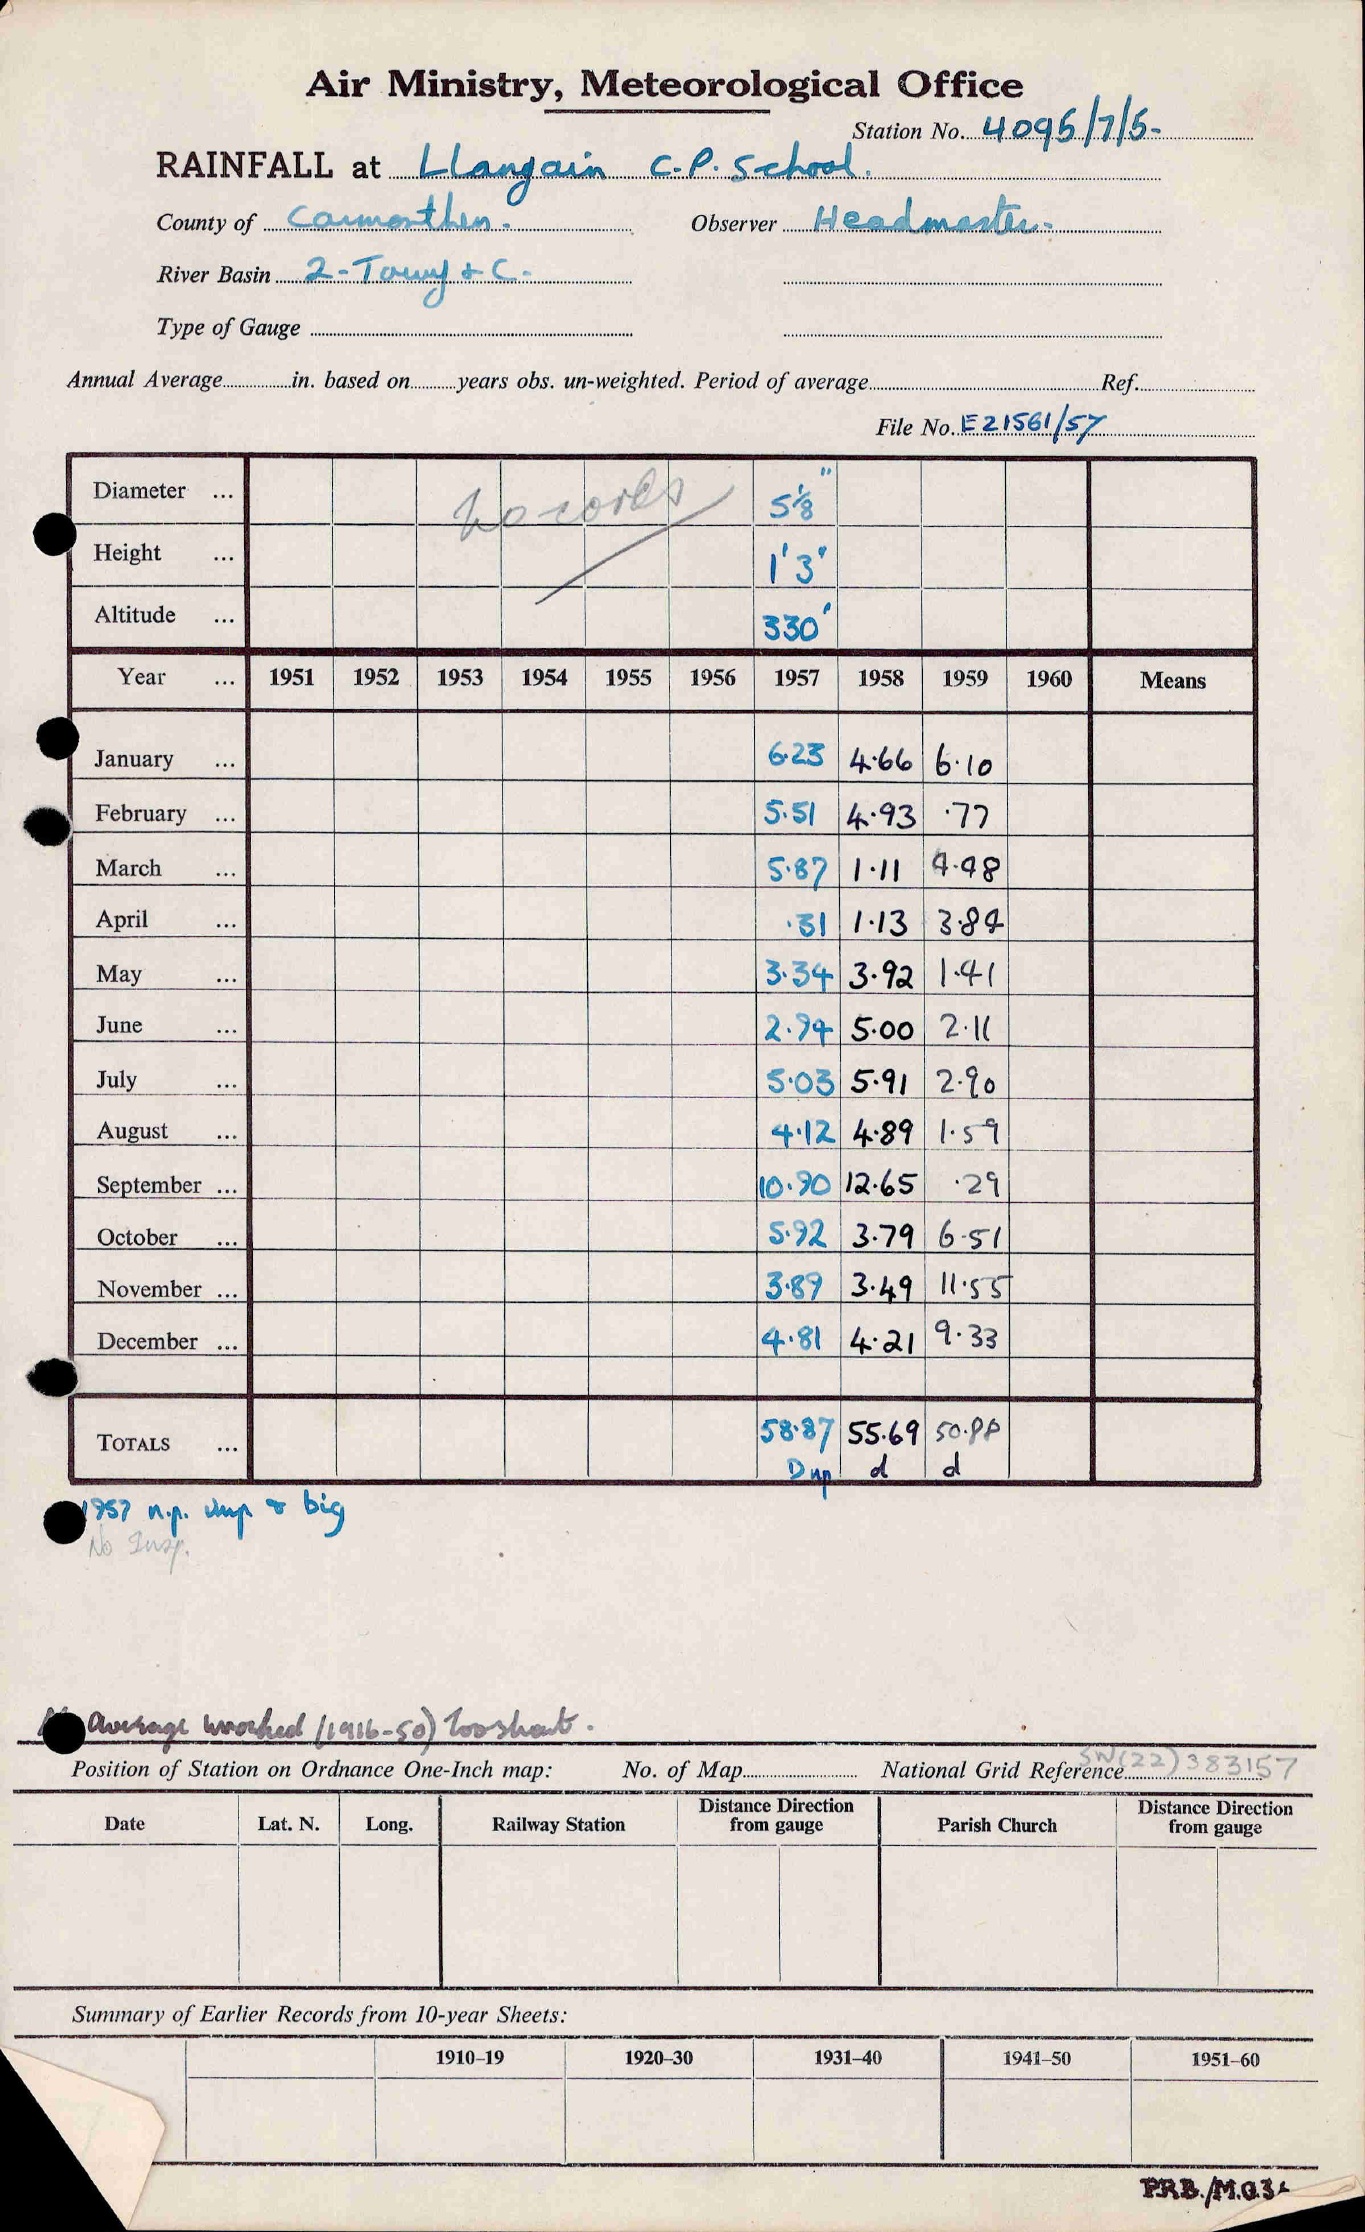 Air Ministry, Meteorological Office
Station No. 4095/7/5-
RAINFALL at Llangain C.P. School.
County of Carmarthen. Observer Headmaster.
River Basin 2-Towy & C.
Type of Gauge
Annual Average in. based on years obs. un-weighted. Period of average Ref.
File No. E21561/57
Diameter ... 5⅛"
Height ... 1' 3"
Altitude ... 330'
Year ... 1951 1952 1953 1954 1955 1956 1957 1958 1959 1960 Means
January ... 6.23 4.66 6.10
February ... 5.51 4.93 .77
March ... 5.87 1.11 4.48
April ... .31 1.13 3.84
May ... 3.34 3.92 1.41
June ... 2.94 5.00 2.11
July ... 5.03 5.91 2.90
August ... 4.12 4.89 1.59
September ... 10.90 12.65 .29
October ... 5.92 3.79 6.51
November ... 3.89 3.49 11.55
December ... 4.81 4.21 9.33
TOTALS ... 58.87 55.69 50.88
Dnp d d
1957 n.p. unp & big
No Insp.
average worked (1916-50) Too short.
Position of Station on Ordnance One-Inch map: No. of Map National Grid Reference SN(22)383157
Date Lat. N. Long. Railway Station Distance Direction from gauge Parish Church Distance Direction from gauge
Summary of Earlier Records from 10-year Sheets:
1910–19 1920–30 1931–40 1941–50 1951–60